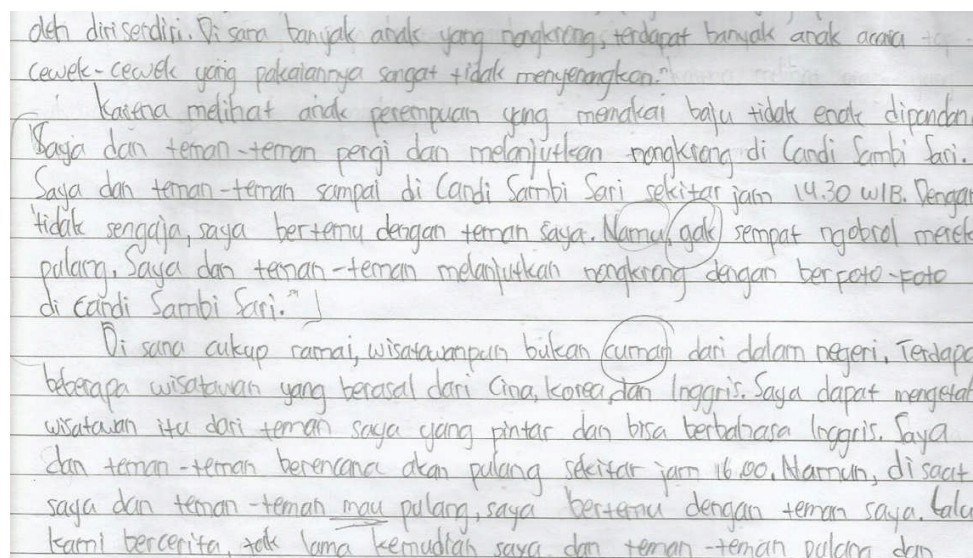 oleh diri sendiri. Di sana banyak anak yang nongkrong, terdapat banyak anak
cewek-cewek yang pakaiannya sangat tidak menyenangkan."
Karena melihat anak perempuan yang memakai baju tidak enak dipandan
Saya dan teman-teman pergi dan melanjutkan nongkrong di Candi Sambi Sari.
Saya dan teman-teman sampai di Candi Sambi Sari sekitar jam 14.30 WIB. Dengan
tidak sengaja, saya bertemu dengan teman saya. Namu, gak sempat ngobrol merek
pulang. Saya dan teman-teman melanjutkan nongkrong dengan berfoto-foto
di Candi Sambi Sari."
Di sana cukup ramai, wisatawanpun bukan cuman dari dalam negeri. Terdapa
beberapa wisatawan yang berasal dari Cina, Korea, dan Inggris. Saya dapat mengetah
wisatawan itu dari teman saya yang pintar dan bisa berbahasa Inggris. Saya
dan teman-teman berencana akan pulang sekitar jam 16.00. Namun, di saat
saya dan teman-teman mau pulang, saya bertemu dengan teman saya. Lalu
kami bercerita, tak lama kemudian saya dan teman-teman pulang dan